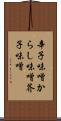 辛子味噌か
らし味噌芥
子味噌